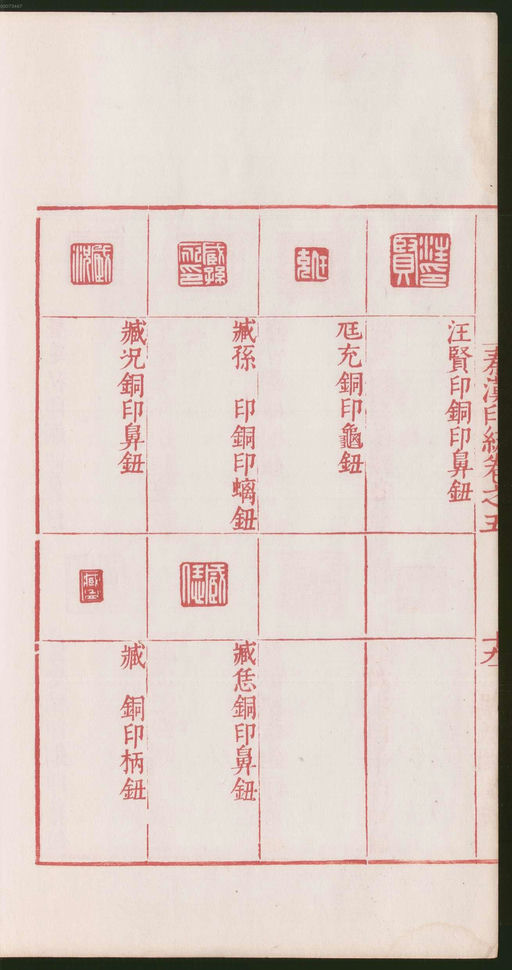 秦漢印統卷之五
十九
汪賢印銅印鼻鈕
尫充銅印龜鈕
臧孫 印銅印螭鈕
臧況銅印鼻鈕
臧恁銅印鼻鈕
臧 銅印柄鈕